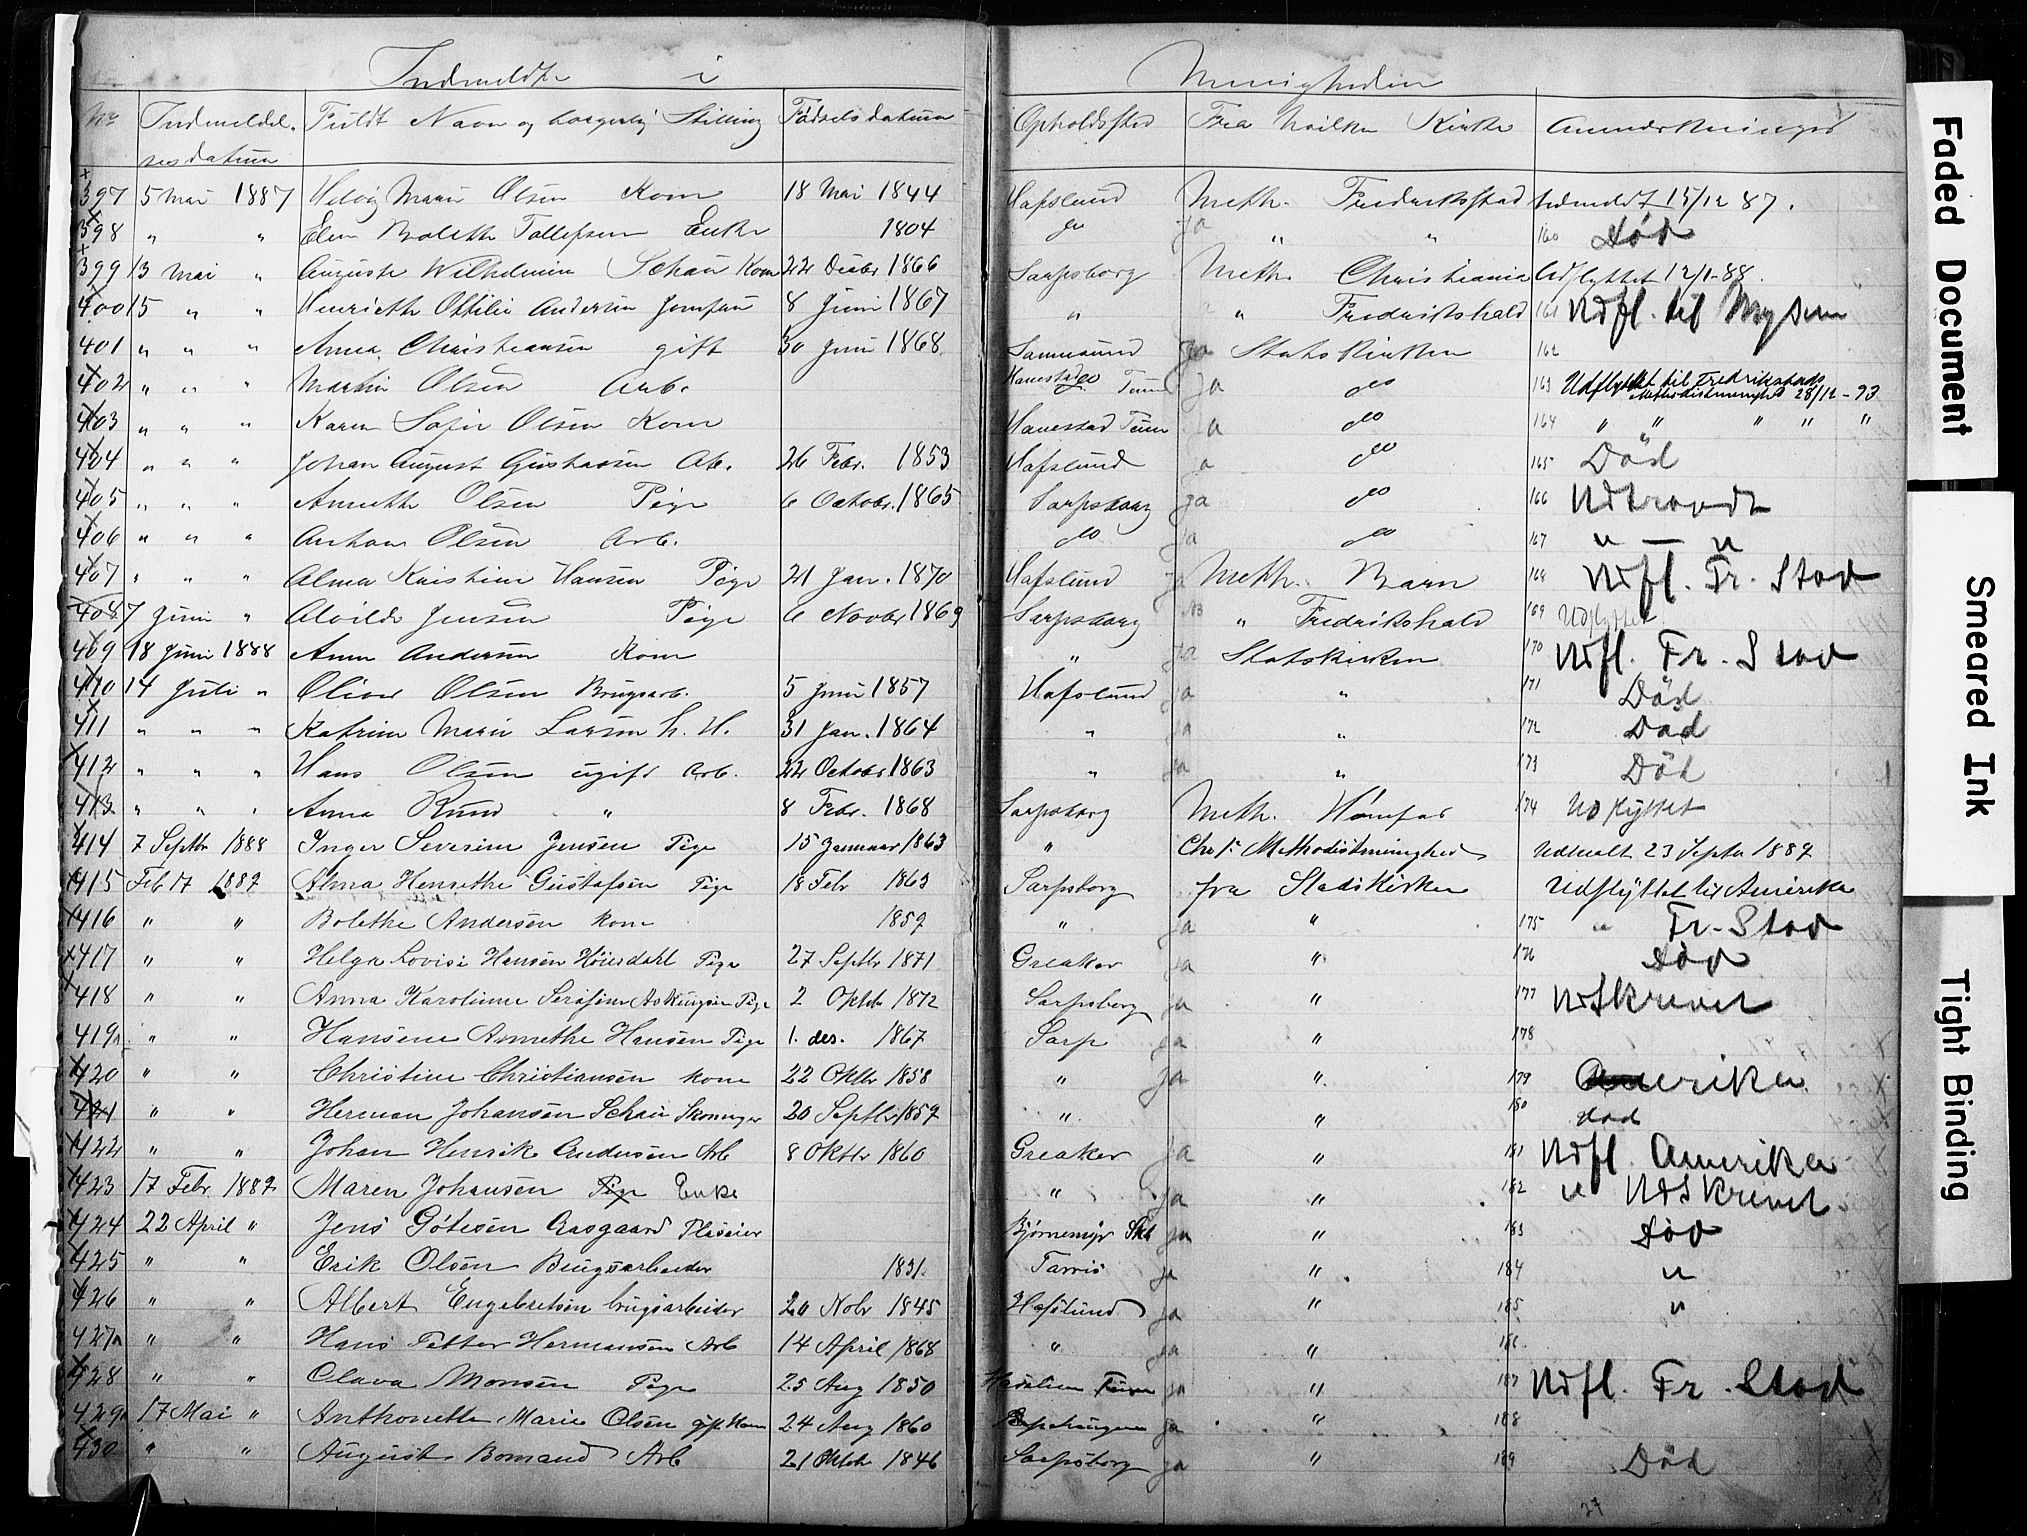 Indmeldte i Menigheden
No Indmeldelsesdatum Fuldt Navn og borgerlig Stilling Fødselsdatum Opholdssted Fra hvilken Kirke Anmærkninger
397 5 Mai 1887 Helvig Marie Olsen Kone 18 Mai 1844 Hafslund Meth. Fredrikstad Udmeldt 15/12 87.
398 " " Elen Bolethe Tollefsen Enke 1804 do Ja " " 160 Død
399 13 Mai " Auguste Wilhelmine Schau Kone 22 Decbr 1866 Sarpsborg Meth. Christiania Udflyttet 12/1-88.
400 15 " " Henriette Ottilie Andersen Jomfru 8 Juni 1867 " " Fredrikshald 161 Udfl. til Mysen
401 " " " Anna Christiansen gift 30 Juni 1868 Sannesund Ja Statskirken 162
402 " " " Martin Olsen Arb. Hanestad Tune Ja do 163 Udflyttet til Fredrikstads Methodistmenighed 28/12-93
403 " " " Karen Sofie Olsen Kone Hanestad Tune Ja do 164 " " " " "
404 " " " Johan August Gustavsen Arb. 26 Febr. 1853 Hafslund Ja do 165 Död
405 " " " Annette Olsen Pige 6 Octobr. 1865 Sarpsborg Ja do 166 Udtraadt
406 " " " Anton Olsen Arb. do Ja do 167 " — "
407 " " " Alma Kristine Hansen Pige 21 Jan. 1870 Hafslund Ja Meth. Barn 168 Udfl. Fr. Stad
408 7 Juni " Alvilde Jensen Pige 6 Novbr 1869 Sarpsborg " Fredrikshald 169 Udflyttet
409 18 Juni 1888 Anne Andersen Kone " Ja Statskirken 170 Udfl. Fr. Stad
410 14 Juli " Oliver Olsen Brugsarb. 5 Juni 1857 Hafslund Ja " 171 Död
411 " " " Katrine Marie Larsen h. H. 31 Jan. 1864 " Ja " 172 Död
412 " " " Hans Olsen ugift Arb. 22 Octobr 1863 " Ja " 173 Död
413 " " " Anna Rund " 8 Febr. 1868 Sarpsborg Meth. Hønefos 174 Udflyttet
414 7 Septbr 1888 Inger Severine Jensen Pige 15 Januar 1863 " Chr. 1' Methodistmenighed Udmelt 23 Septr 1889
415 Feb 17 1889 Alma Henrethe Gustafsen Pige 18 Febr 1863 Sarpsborg fra Stadskirken Udflyttet til Amerika
416 " " Bolethe Andersen kone 1859 " Ja " 175 " Fr. Stad
417 " " Helga Lovise Hansen Höiesdahl Pige 27 Septbr 1871 Greaker Ja " 176 Død
418 " " Anna Karoline Serafine Askingsen Pige 2 Oktbr 1872 Sarpsborg Ja " 177 Udskrevet
419 " " Hansine Annethe Hansen Pige 1. des. 1867 Sarp Ja " 178
420 " " Christine Christiansen kone 22 Oktbr 1858 " Ja " 179 Amerika
421 " " Herman Johansen Schau Skomager 20 Septbr 1859 " " 180 død
422 " " Johan Henrik Andersen Arb 8 Oktbr 1860 Greaker Ja " 181 Udfl. Amerika
423 17 Febr 1889 Maren Johansen Pige Enke " Ja " 182 " Udskrevet
424 22 April " Jens Götesen Aasgaard Pladseier Bjørnemyr Skb Ja " 183 Død
425 " " Erik Olsen Brugsarbeider 1831. Tarris Ja " 184 "
426 " " Albert Engebretsen brugsarbeider 20 Nobr 1845 Hafslund Ja " 185 "
427 " " Hans Petter Hermansen Arb 14 April 1868 " Ja " 186
428 " " Olava Monsen Pige 25 Aug 1850 Tune Ja " 187 Udfl. Fr. Stad
429 17 Mai " Anthonette Marie Olsen gift kone 24 Aug 1860 Ja " 188
430 " " August Bomand Arb 21 Oktbr 1846 Sarpsborg Ja " 189 Död
27
Faded Document
Smeared Ink
Tight Binding